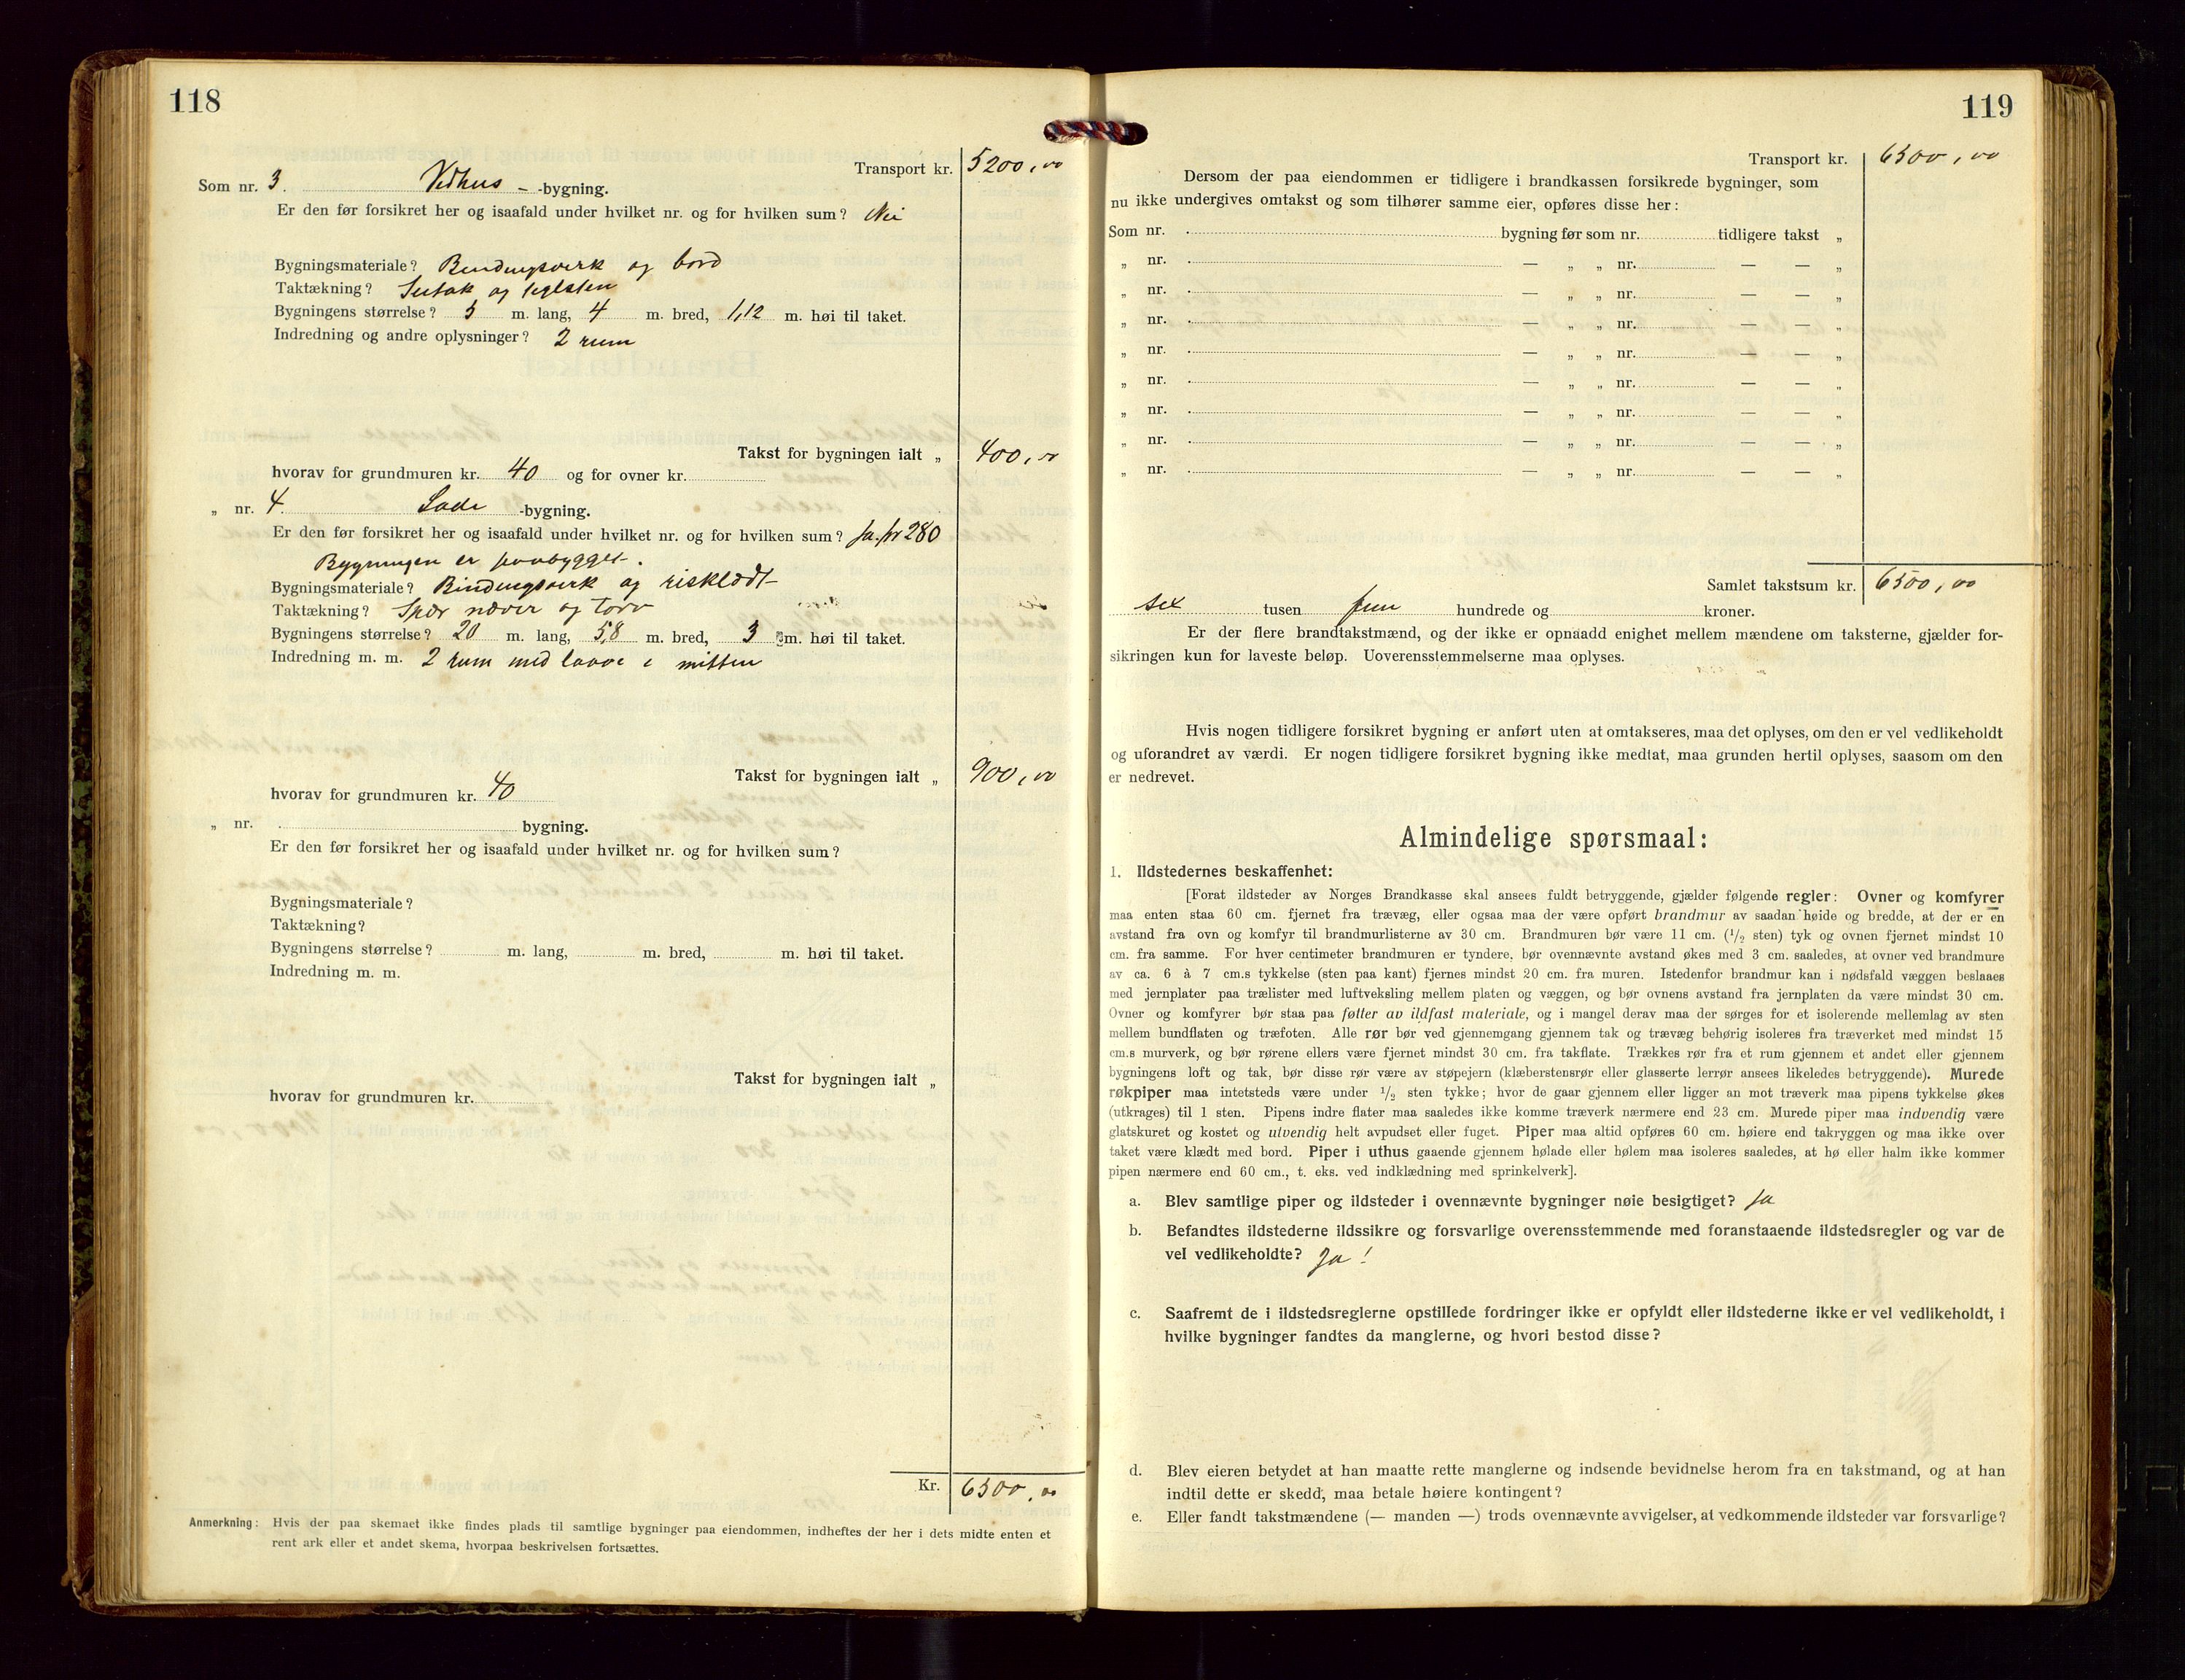 118
Transport kr. 5200,00
Som nr. 3. Vedhus - -bygning.
Er den før forsikret her og isaafald under hvilket nr. og for hvilken sum? Nei
Bygningsmateriale? Bindingsverk og bord
Taktækning? Sutak og teglsten
Bygningens størrelse? 5 m. lang, 4 m. bred, 1,12 m. høi til taket.
Indredning og andre oplysninger? 2 rum
Takst for bygningen ialt „ 400,00
hvorav for grundmuren kr. 40 og for ovner kr.
„ nr. 4. Lade -bygning.
Er den før forsikret her og isaafald under hvilket nr. og for hvilken sum? Ja. fr 280
Bygningen er paabygget.
Bygningsmateriale? Bindingsverk og risklædt
Taktækning? Spær næver og torv
Bygningens størrelse? 20 m. lang, 5,8 m. bred, 3 m. høi til taket.
Indredning m. m. 2 rum med laave i mitten
Takst for bygningen ialt „ 900,00
hvorav for grundmuren kr. 40
„ nr. bygning.
Er den før forsikret her og isaafald under hvilket nr. og for hvilken sum?
Bygningsmateriale?
Taktækning?
Bygningens størrelse? m. lang, m. bred, m. høi til taket.
Indredning m. m.
Takst for bygningen ialt „
hvorav for grundmuren kr.
Kr. 6500,00
Anmerkning: Hvis der paa skemaet ikke findes plads til samtlige bygninger paa eiendommen, indheftes der her i dets midte enten et
rent ark eller et andet skema, hvorpaa beskrivelsen fortsættes.
119
Transport kr. 6500,00
Dersom der paa eiendommen er tidligere i brandkassen forsikrede bygninger, som
nu ikke undergives omtakst og som tilhører samme eier, opføres disse her:
Som nr. bygning før som nr. tidligere takst „
„ nr. — „ „ nr. — — „
„ nr. — „ „ nr. — — „
„ nr. — „ „ nr. — — „
„ nr. — „ „ nr. — — „
„ nr. — „ „ nr. — — „
„ nr. — „ „ nr. — — „
„ nr. — „ „ nr. — — „
„ nr. — „ „ nr. — — „
Samlet takstsum kr. 6500,00
sex tusen fem hundrede og kroner.
Er der flere brandtakstmænd, og der ikke er opnaadd enighet mellem mændene om taksterne, gjælder for-
sikringen kun for laveste beløp. Uoverensstemmelserne maa oplyses.
Hvis nogen tidligere forsikret bygning er anført uten at omtakseres, maa det oplyses, om den er vel vedlikeholdt
og uforandret av værdi. Er nogen tidligere forsikret bygning ikke medtat, maa grunden hertil oplyses, saasom om den
er nedrevet.
Almindelige spørsmaal:
1. Ildstedernes beskaffenhet:
[Forat ildsteder av Norges Brandkasse skal ansees fuldt betryggende, gjælder følgende regler: Ovner og komfyrer
maa enten staa 60 cm. fjernet fra trævæg, eller ogsaa maa der være opført brandmur av saadan høide og bredde, at der er en
avstand fra ovn og komfyr til brandmurlisterne av 30 cm. Brandmuren bør være 11 cm. (1/2 sten) tyk og ovnen fjernet mindst 10
cm. fra samme. For hver centimeter brandmuren er tyndere, bør ovennævnte avstand økes med 3 cm. saaledes, at ovner ved brandmure
av ca. 6 à 7 cm.s tykkelse (sten paa kant) fjernes mindst 20 cm. fra muren. Istedenfor brandmur kan i nødsfald væggen beslaaes
med jernplater paa trælister med luftveksling mellem platen og væggen, og bør ovnens avstand fra jernplaten da være mindst 30 cm.
Ovner og komfyrer bør staa paa føtter av ildfast materiale, og i mangel derav maa der sørges for et isolerende mellemlag av sten
mellem bundflaten og træfoten. Alle rør bør ved gjennemgang gjennem tak og trævæg behørig isoleres fra træverket med mindst 15
cm.s murverk, og bør rørene ellers være fjernet mindst 30 cm. fra takflate. Trækkes rør fra et rum gjennem et andet eller gjennem
bygningens loft og tak, bør disse rør være av støpejern (klæberstensrør eller glasserte lerrør ansees likeledes betryggende). Murede
røkpiper maa intetsteds være under 1/2 sten tykke; hvor de gaar gjennem eller ligger an mot træverk maa pipens tykkelse økes
(utkrages) til 1 sten. Pipens indre flater maa saaledes ikke komme træverk nærmere end 23 cm. Murede piper maa indvendig være
glatskuret og kostet og utvendig helt avpudset eller fuget. Piper maa altid opføres 60 cm. høiere end takryggen og maa ikke over
taket være klædt med bord. Piper i uthus gaaende gjennem hølade eller hølem maa isoleres saaledes, at hø eller halm ikke kommer
pipen nærmere end 60 cm., t. eks. ved indklædning med sprinkelverk].
a. Blev samtlige piper og ildsteder i ovennævnte bygninger nøie besigtiget? Ja
b. Befandtes ildstederne ildssikre og forsvarlige overensstemmende med foranstaaende ildstedsregler og var de
vel vedlikeholdte? Ja!
c. Saafremt de i ildstedsreglerne opstillede fordringer ikke er opfyldt eller ildstederne ikke er vel vedlikeholdt, i
hvilke bygninger fandtes da manglerne, og hvori bestod disse?
d. Blev eieren betydet at han maatte rette manglerne og indsende bevidnelse herom fra en takstmand, og at han
indtil dette er skedd, maa betale høiere kontingent?
e. Eller fandt takstmændene (— manden —) trods ovennævnte avvigelser, at vedkommende ildsteder var forsvarlige?